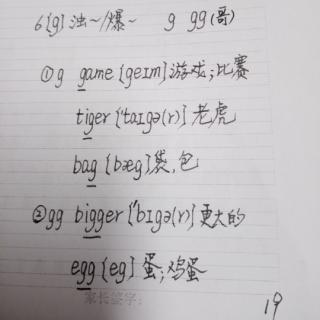 6 [g] 浊~/爆~ g gg(哥)
①g game [geɪm] 游戏;比赛
tiger ['taɪgə(r)] 老虎
bag [bæg] 袋,包
②gg bigger ['bɪgə(r)] 更大的
egg [eg] 蛋;鸡蛋
家长签字:
19